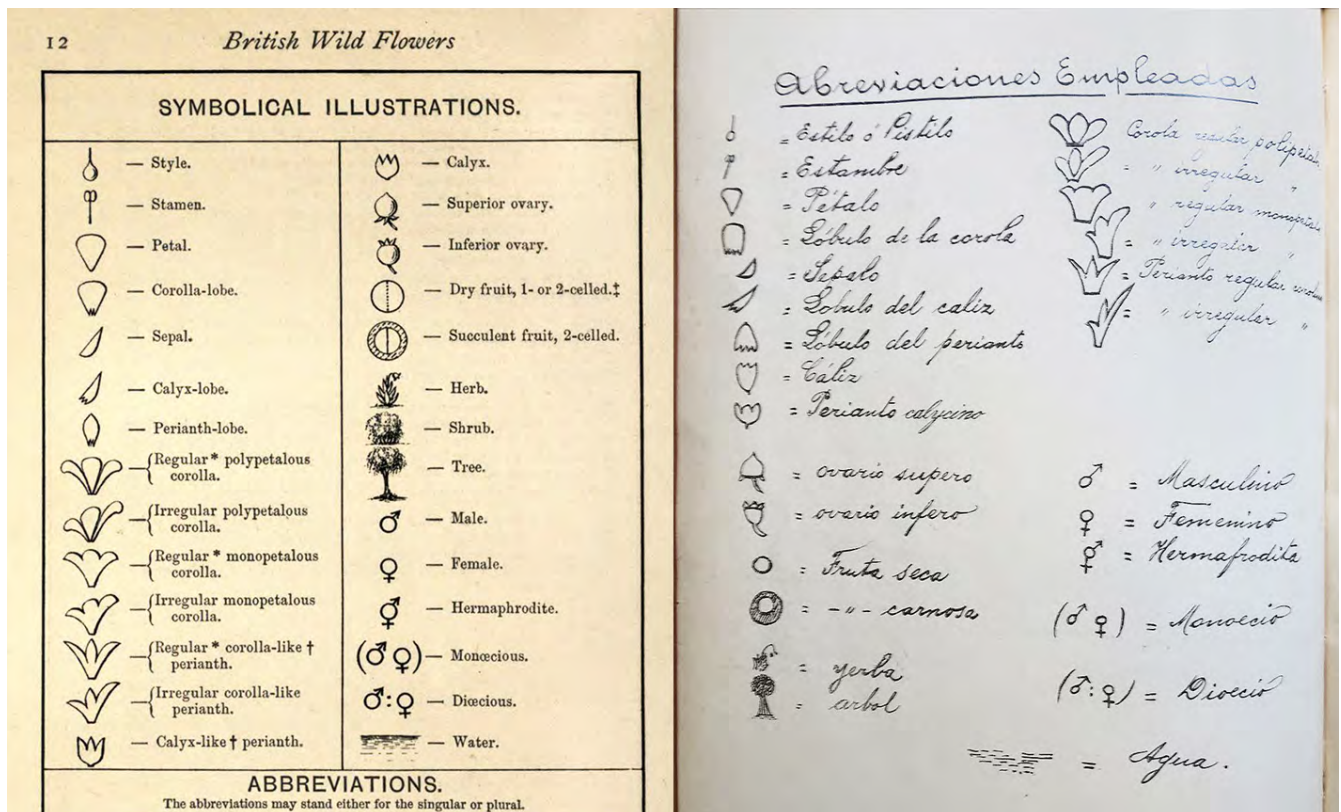 12 British Wild Flowers
SYMBOLICAL ILLUSTRATIONS.
— Style.
— Stamen.
— Petal.
— Corolla-lobe.
— Sepal.
— Calyx-lobe.
— Perianth-lobe.
—{Regular * polypetalous
corolla.
—{Irregular polypetalous
corolla.
—{Regular * monopetalous
corolla.
—{Irregular monopetalous
corolla.
—{Regular * corolla-like †
perianth.
—{Irregular corolla-like
perianth.
— Calyx-like † perianth.
— Calyx.
— Superior ovary.
— Inferior ovary.
— Dry fruit, 1- or 2-celled.‡
— Succulent fruit, 2-celled.
— Herb.
— Shrub.
— Tree.
♂ — Male.
♀ — Female.
⚥ — Hermaphrodite.
(♂ ♀) — Monœcious.
♂:♀ — Diœcious.
— Water.
ABBREVIATIONS.
The abbreviations may stand either for the singular or plural.
Abreviaciones Empleadas
= Estilo ó Pistilo
= Estambre
= Pétalo
= Lóbulo de la corola
= Sepalo
= Lobulo del caliz
= Lóbulo del perianto
= Cáliz
= Perianto calycino
= ovario supero
= ovario infero
= Fruta seca
= -〃- carnosa
= yerba
= arbol
Corola regular
= 〃 irregular 〃
〃 regular
= 〃 irregular 〃
= Perianto regular
= 〃 irregular 〃
♂ = Masculino
♀ = Femenino
⚥ = Hermafrodita
(♂ ♀) = Monoecio
(♂:♀) = Dioecio
= Agua.